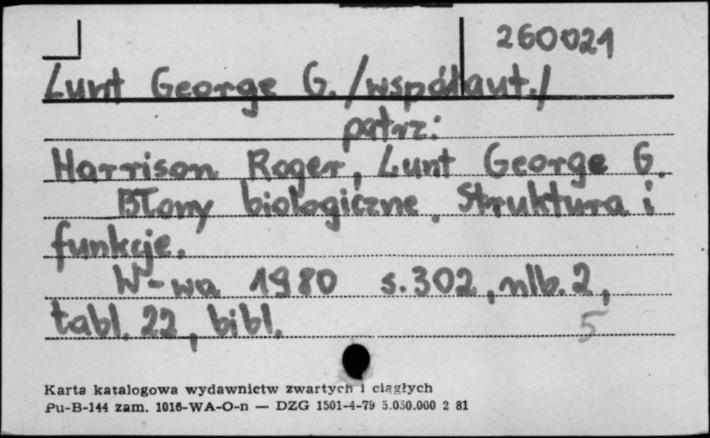 260021
Lunt George G. /współaut./
patrz:
Harrison Roger, Lunt George G.
Błony biologiczne. Struktura i
funkcje.
W-wa 1980 s. 302, nlb. 2,
tabl. 22, bibl.
5
Karta katalogowa wydawnictw zwartych i ciągłych
Pu-B-144 zam. 1016-WA-O-n — DZG 1501-4-79 5.050.000 2 81